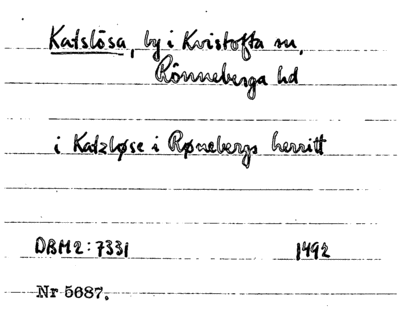 Katslösa, by i Kvistofta sn,
Rönneberga hd
i Katzløse i Rønebergs herritt
DBM2:7331 1492
Nr 5687.